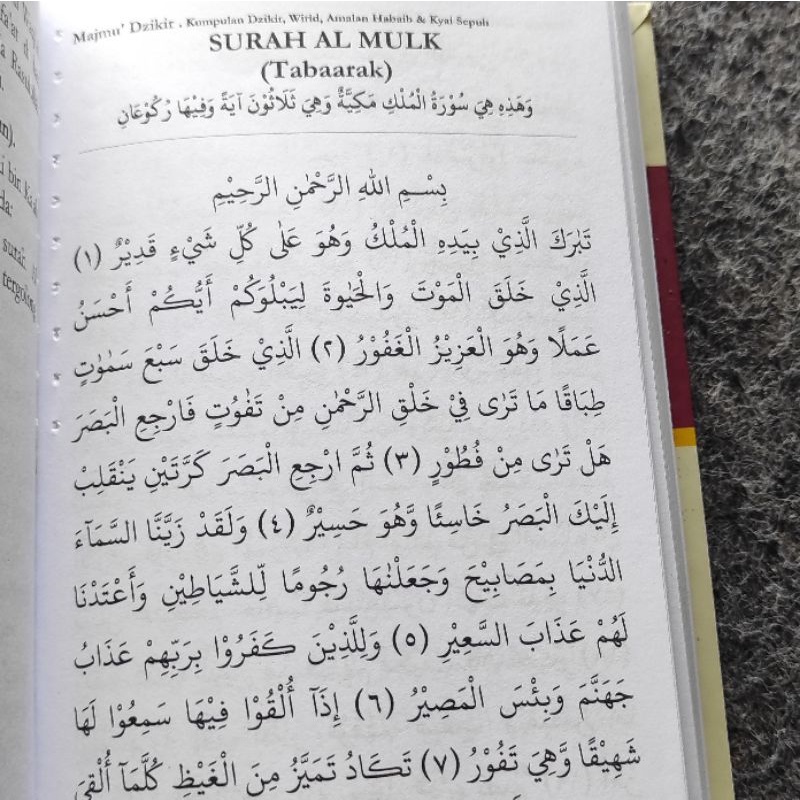 Majmu' Dzikir . Kumpulan Dzikir, Wirid, Amalan Habaib & Kyai Sepuh
SURAH AL MULK
(Tabaarak)
وَهَذِهِ هِيَ سُوْرَةُ الْمُلْكِ مَكِيَّةٌ وَهِيَ ثَلَاثُوْنَ آيَةً وَفِيْهَا رُكُوْعَانِ
بِسْمِ اللهِ الرَّحْمٰنِ الرَّحِيْمِ
تَبٰرَكَ الَّذِيْ بِيَدِهِ الْمُلْكُ وَهُوَ عَلٰى كُلِّ شَيْءٍ قَدِيْرٌ (١)
الَّذِيْ خَلَقَ الْمَوْتَ وَالْحَيٰوةَ لِيَبْلُوَكُمْ أَيُّكُمْ أَحْسَنُ
عَمَلًا وَهُوَ الْعَزِيْزُ الْغَفُوْرُ (٢) الَّذِيْ خَلَقَ سَبْعَ سَمٰوٰتٍ
طِبَاقًا مَا تَرٰى فِيْ خَلْقِ الرَّحْمٰنِ مِنْ تَفٰوُتٍ فَارْجِعِ الْبَصَرَ
هَلْ تَرٰى مِنْ فُطُوْرٍ (٣) ثُمَّ ارْجِعِ الْبَصَرَ كَرَّتَيْنِ يَنْقَلِبْ
إِلَيْكَ الْبَصَرُ خَاسِئًا وَّهُوَ حَسِيْرٌ (٤) وَلَقَدْ زَيَّنَّا السَّمَآءَ
الدُّنْيَا بِمَصَابِيْحَ وَجَعَلْنٰهَا رُجُوْمًا لِّلشَّيَاطِيْنِ وَأَعْتَدْنَا
لَهُمْ عَذَابَ السَّعِيْرِ (٥) وَلِلَّذِيْنَ كَفَرُوْا بِرَبِّهِمْ عَذَابُ
جَهَنَّمَ وَبِئْسَ الْمَصِيْرُ (٦) إِذَآ أُلْقُوْا فِيْهَا سَمِعُوْا لَهَا
شَهِيْقًا وَّهِيَ تَفُوْرُ (٧) تَكَادُ تَمَيَّزُ مِنَ الْغَيْظِ كُلَّمَآ أُلْقِيَ